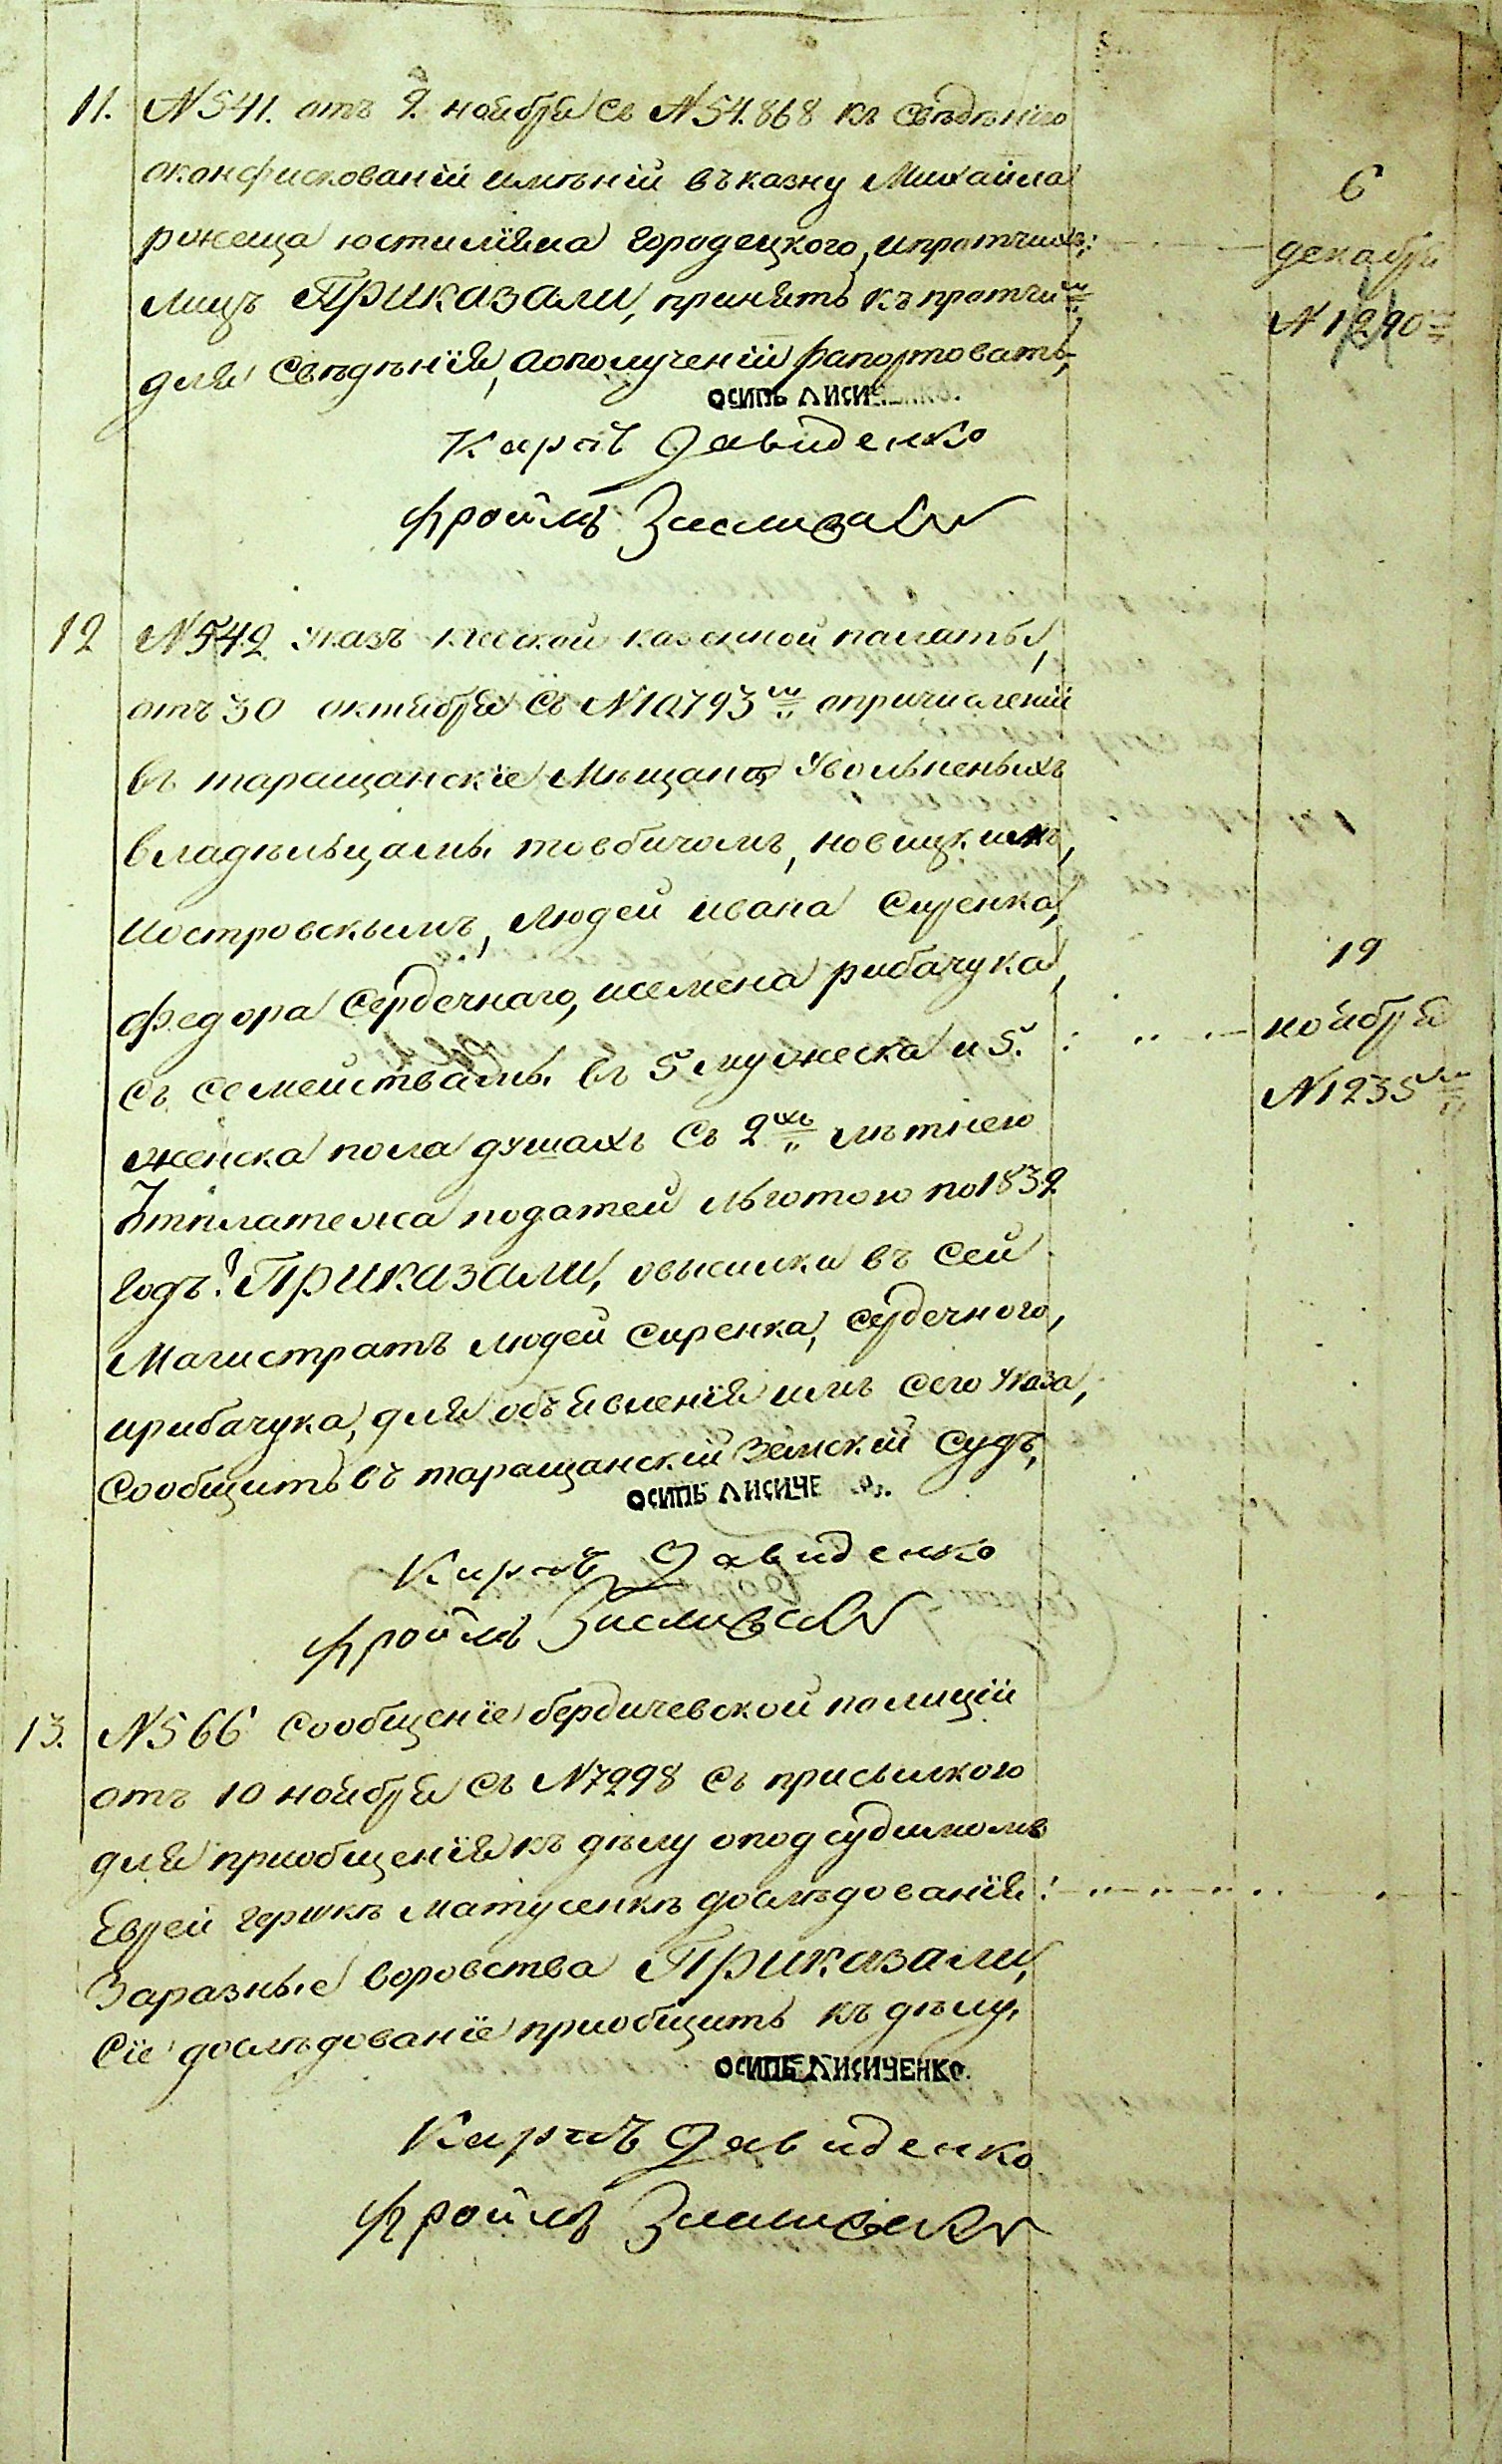 11. N 541. отъ 2. ноября съ N 54.868 къ сведенію
оконфискованіи имѣній въ казну Михаила
ронеща юстиліяна городецкого, ипротчихъ:
лицъ Приказали, принять къ протчимъ
для Сведенія, аополученіи рапортовать,
6
декабря
N 1290
ОСИПЬ ЛИСИЧЕНКО.
Карпъ Давиденко
Фроимъ Заславскій
12 N 542. Указъ кіевской казенной палаты,
отъ 30 октября съ N 10793мъ опричисленіи
въ таращанскіе Мѣщане Увольненыхъ
владѣльцамы товбичомъ, новицкимъ,
иостровскымъ, людей ивана Сиренка,
федора Сердечнаго, исемена рибачука,
съ семействамы въ 5 мужеска и 5.
женска пола душахъ съ 2хъ лѣтнею
Ѿтплатежа податей льготою по 1832
годъ? Приказали, овысилки въ сей
Магистратъ людей Сиренка, Сердечного,
ирибачука, для объявленія имъ сего Указа,
Сообщить въ таращанскій Земскій Судъ,
19
ноября
N 1235мъ
ОСИПЬ ЛИСИЧЕ
Карпъ Давиденко
Фроимъ Заславскій
13. N 566 Сообщеніе бердичевской полиціи
отъ 10 ноября съ N 7298 съ присылкого
для приобщенія къ дѣлу оподсудимомъ
Еврей гершкѣ матусенкѣ дослѣдованія:
Заразные воровства Приказали,
Сіе дослѣдованіе приобщить къ дѣлу,
ОСИПЬ ЛИСИЧЕНКО.
Карпъ Давиденко
Фроимъ Заславскій